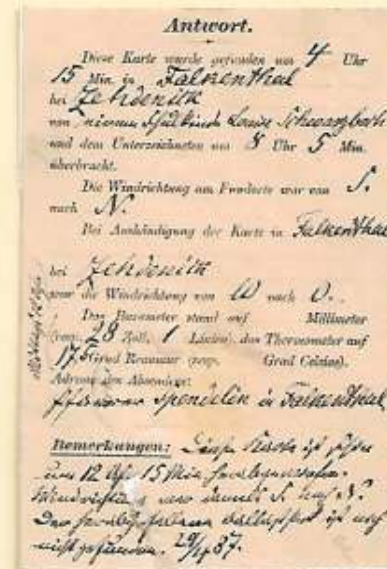 Antwort.
Diese Karte wurde gefunden um 4 Uhr
15 Min. in Falkenthal
bei Zehdenick
von einem Schulkinde Louise Schwarzbach
und dem Unterzeichneten um 8 Uhr 5 Min.
überbracht.
Die Windrichtung am Fundorte war von S.
nach N.
Bei Aushändigung der Karte in Falkenthal
bei Zehdenick
war die Windrichtung von W nach O.
Das Barometer stand auf Millimeter
(resp. 28 Zoll, 1 Linien), das Thermometer auf
17,5 Grad Reaumur (resp. Grad Celsius).
Adresse des Absenders:
Pfarrer Spendelin in Falkenthal
Bemerkungen: Diese Karte ist schon
um 12 Uhr 15 Min
Windrichtung war damals S nach N.
Der ist noch
nicht gefunden. 87.